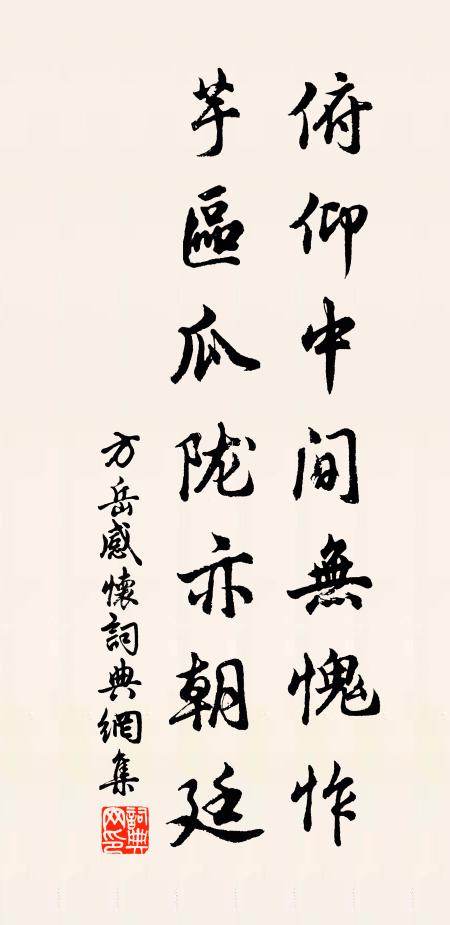 俯仰中间無愧怍
芋區瓜陇亦朝廷
方岳感懷詞典網集
詞典网印